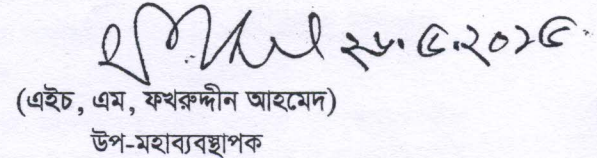 ২৮.৫.২০২৫
(এইচ, এম, ফখরুদ্দীন আহমেদ)
উপ-মহাব্যবস্থাপক